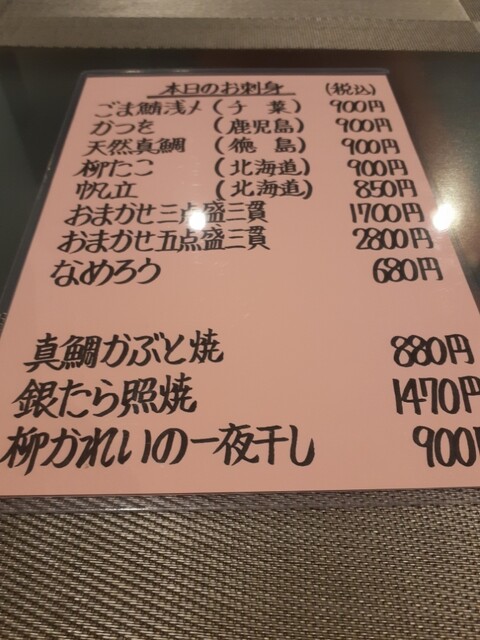 本日のお刺身 (税込)
ごま鯖浅〆 (千葉) 900円
かつを (鹿児島) 900円
天然真鯛 (徳島) 900円
柳たこ (北海道) 900円
帆立 (北海道) 850円
おまかせ三点盛三貫 1700円
おまかせ五点盛三貫 2800円
なめろう 680円
真鯛かぶと焼 880円
銀たら照焼 1470円
柳かれいの一夜干し 900円